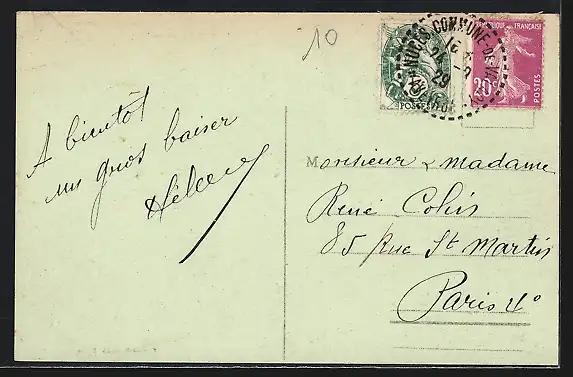 10
RÉPUBLIQUE FRANÇAISE
20c
POSTES
POSTES
COMMUNE-DE-VA
A bientôt
un gros baiser
Hélène
Monsieur & Madame
René Colin
85 Rue St Martin
Paris 4°